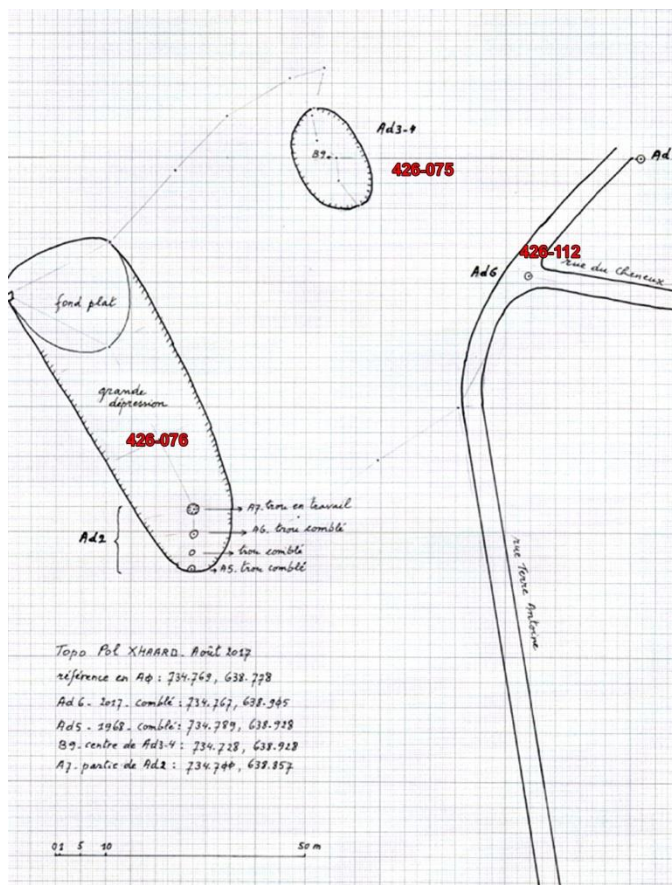 Ad3-4
B9
426-075
Ad
426-112
rue du Cheneux
Ad6
fond plat
grande
dépression
426-076
A7. trou en travail
A6. trou comblé
Ad2
trou comblé
A5. trou comblé
rue Terre Antoine
Topo Pol XHAARD. Août 2017
référence en Aφ : 734.769, 638.778
Ad 6 - 2017 - comblé : 734.767, 638.945
Ad5 - 1968 - comblé : 734.789, 638.928
B9 - centre de Ad3-4 : 734.728, 638.928
A7. partie de Ad2 : 734.700, 638.857
01 5 10 50 m